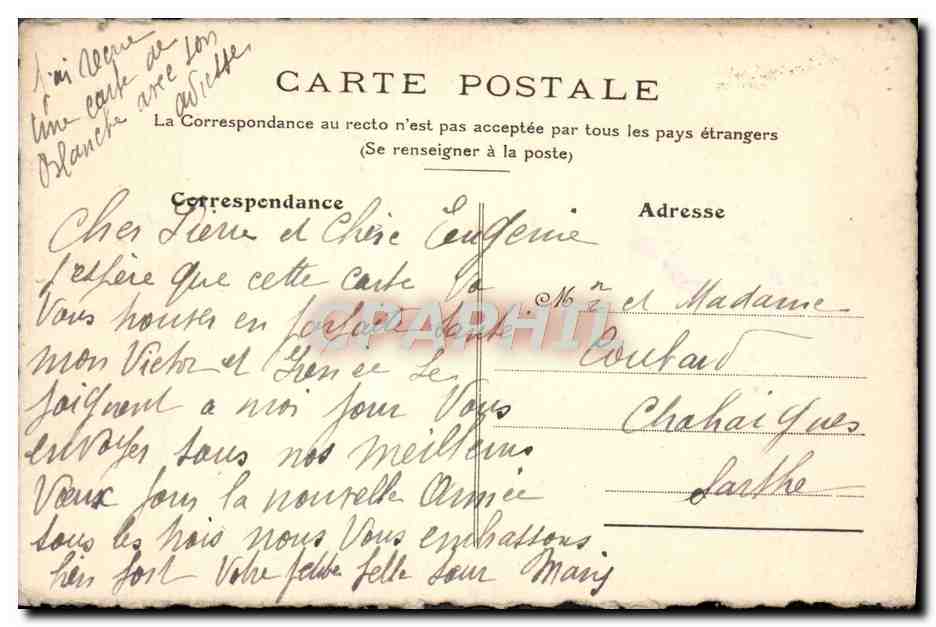 j'ai reçue
une carte de
Blanche avec son
adresse
CARTE POSTALE
La Correspondance au recto n'est pas acceptée par tous les pays étrangers
(Se renseigner à la poste)
Correspondance
Adresse
Cher Pierre et Chère Eugénie
j'espère que cette carte va
Vous trouver en parfaite santé
mon Victor et Irénée se
joignent a moi pour Vous
envoyer tous nos meilleurs
Vœux pour la nouvelle Année
tous les trois nous Vous embrassons
bien fort Votre petite belle sœur
Mr et Madame
Coubard
Chahaignes
Sarthe
CPAPHIL